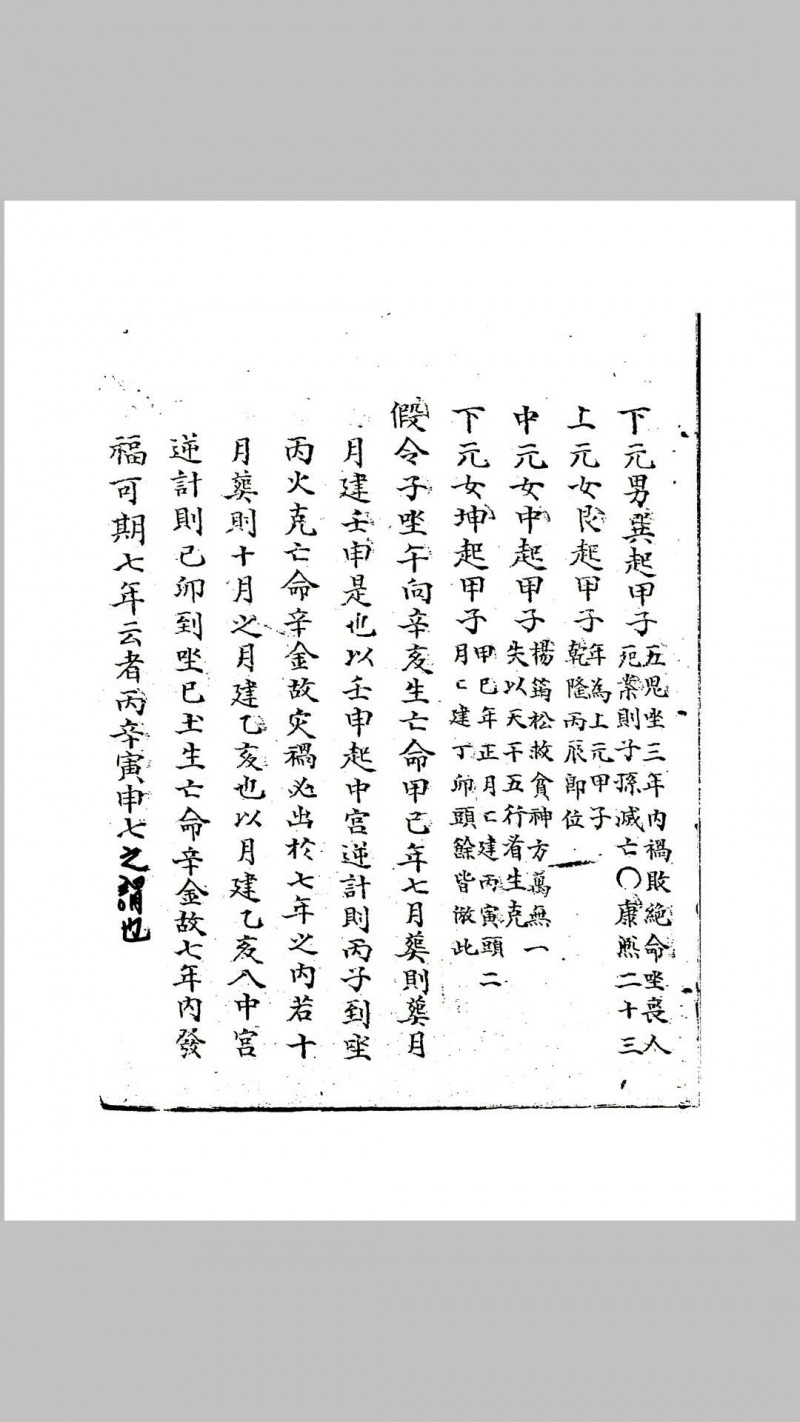 下元男巽起甲子五鬼坐三年內禍敗絕命坐喪人
宛業則子孫滅亡〇康熙二十三
上元女艮起甲子年為上元甲子
乾隆丙辰即位
中元女中起甲子楊筠松救貧神方萬無一
失以天干五行看生克
下元女坤起甲子甲己年正月月建丙寅頭二
月月建丁卯頭餘皆倣此
假令子坐午向辛亥生亡命甲己年七月葬則葬月
月建壬申是也以壬申起中宮逆計則丙子到坐
丙火克亡命辛金故灾禍必出於七年之內若十
月葬則十月之月建乙亥也以月建乙亥入中宮
逆計則己卯到坐己土生亡命辛金故七年內發
福可期七年云者丙辛寅申七之謂也